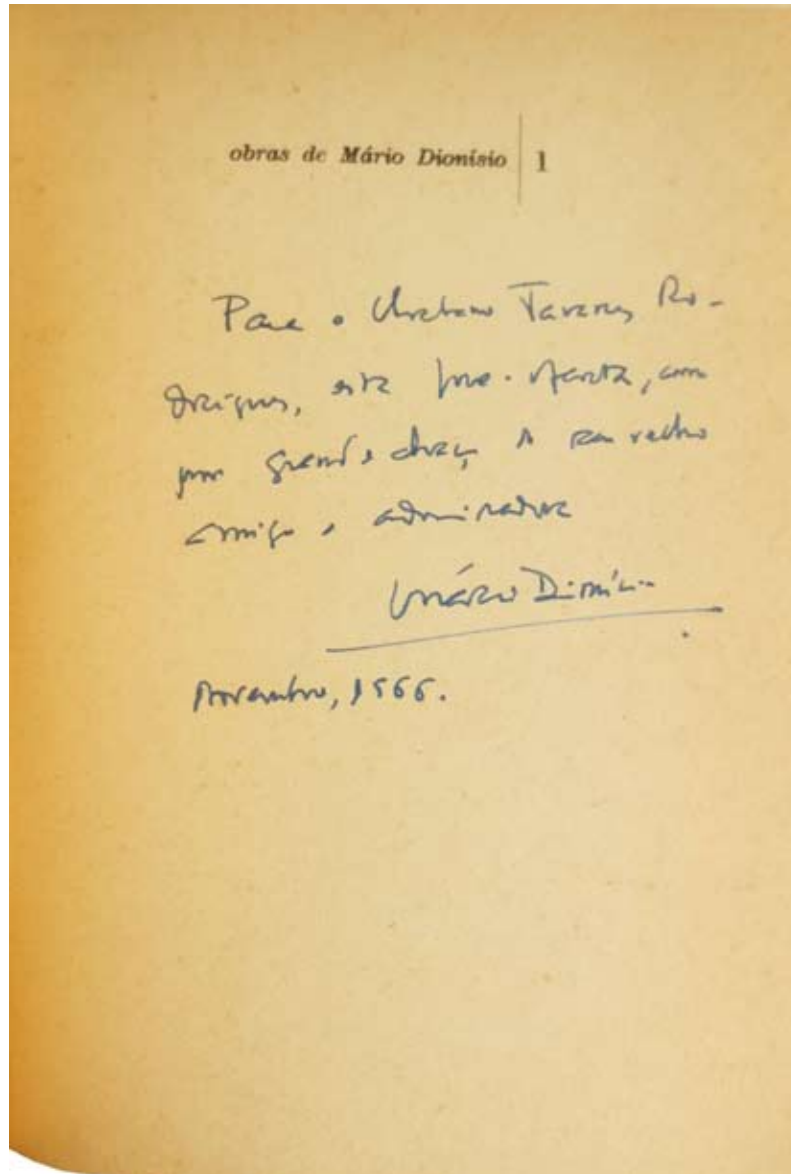 obras de Mário Dionísio | 1
Para o Urbano Tavares Ro-
drigues, esta poesia incompleta, com
um grande abraço do seu velho
amigo e admirador
Mário Dionísio
Novembro, 1966.